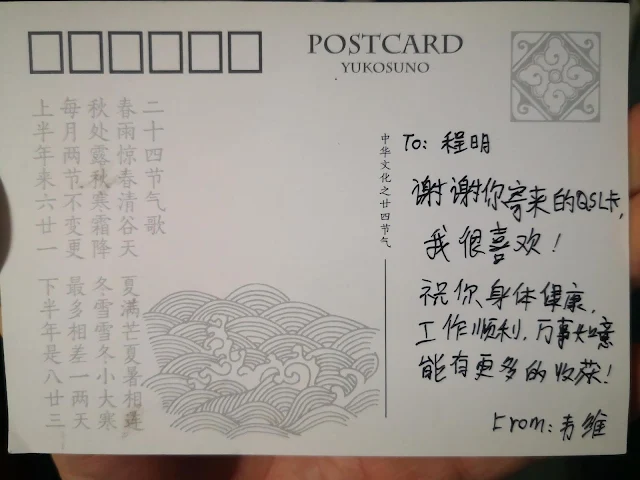 POSTCARD
YUKOSUNO
二十四节气歌
春雨惊春清谷天
夏满芒夏暑相连
秋处露秋寒霜降
冬雪雪冬小大寒
每月两节不变更
最多相差一两天
上半年来六廿一
下半年是八廿三
中华文化之廿四节气
To: 程明
谢谢你寄来的QSL卡,
我很喜欢!
祝你身体健康,
工作顺利,万事如意
能有更多的收获!
From: 韦维